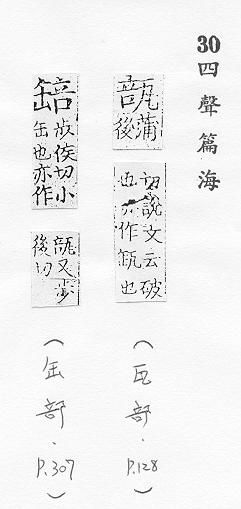 30四聲篇海
瓿蒲後切說文云破也亦作也
(瓦部.P.128)
䍌侯切小缶也亦作瓿又步後切
(缶部.P.307)